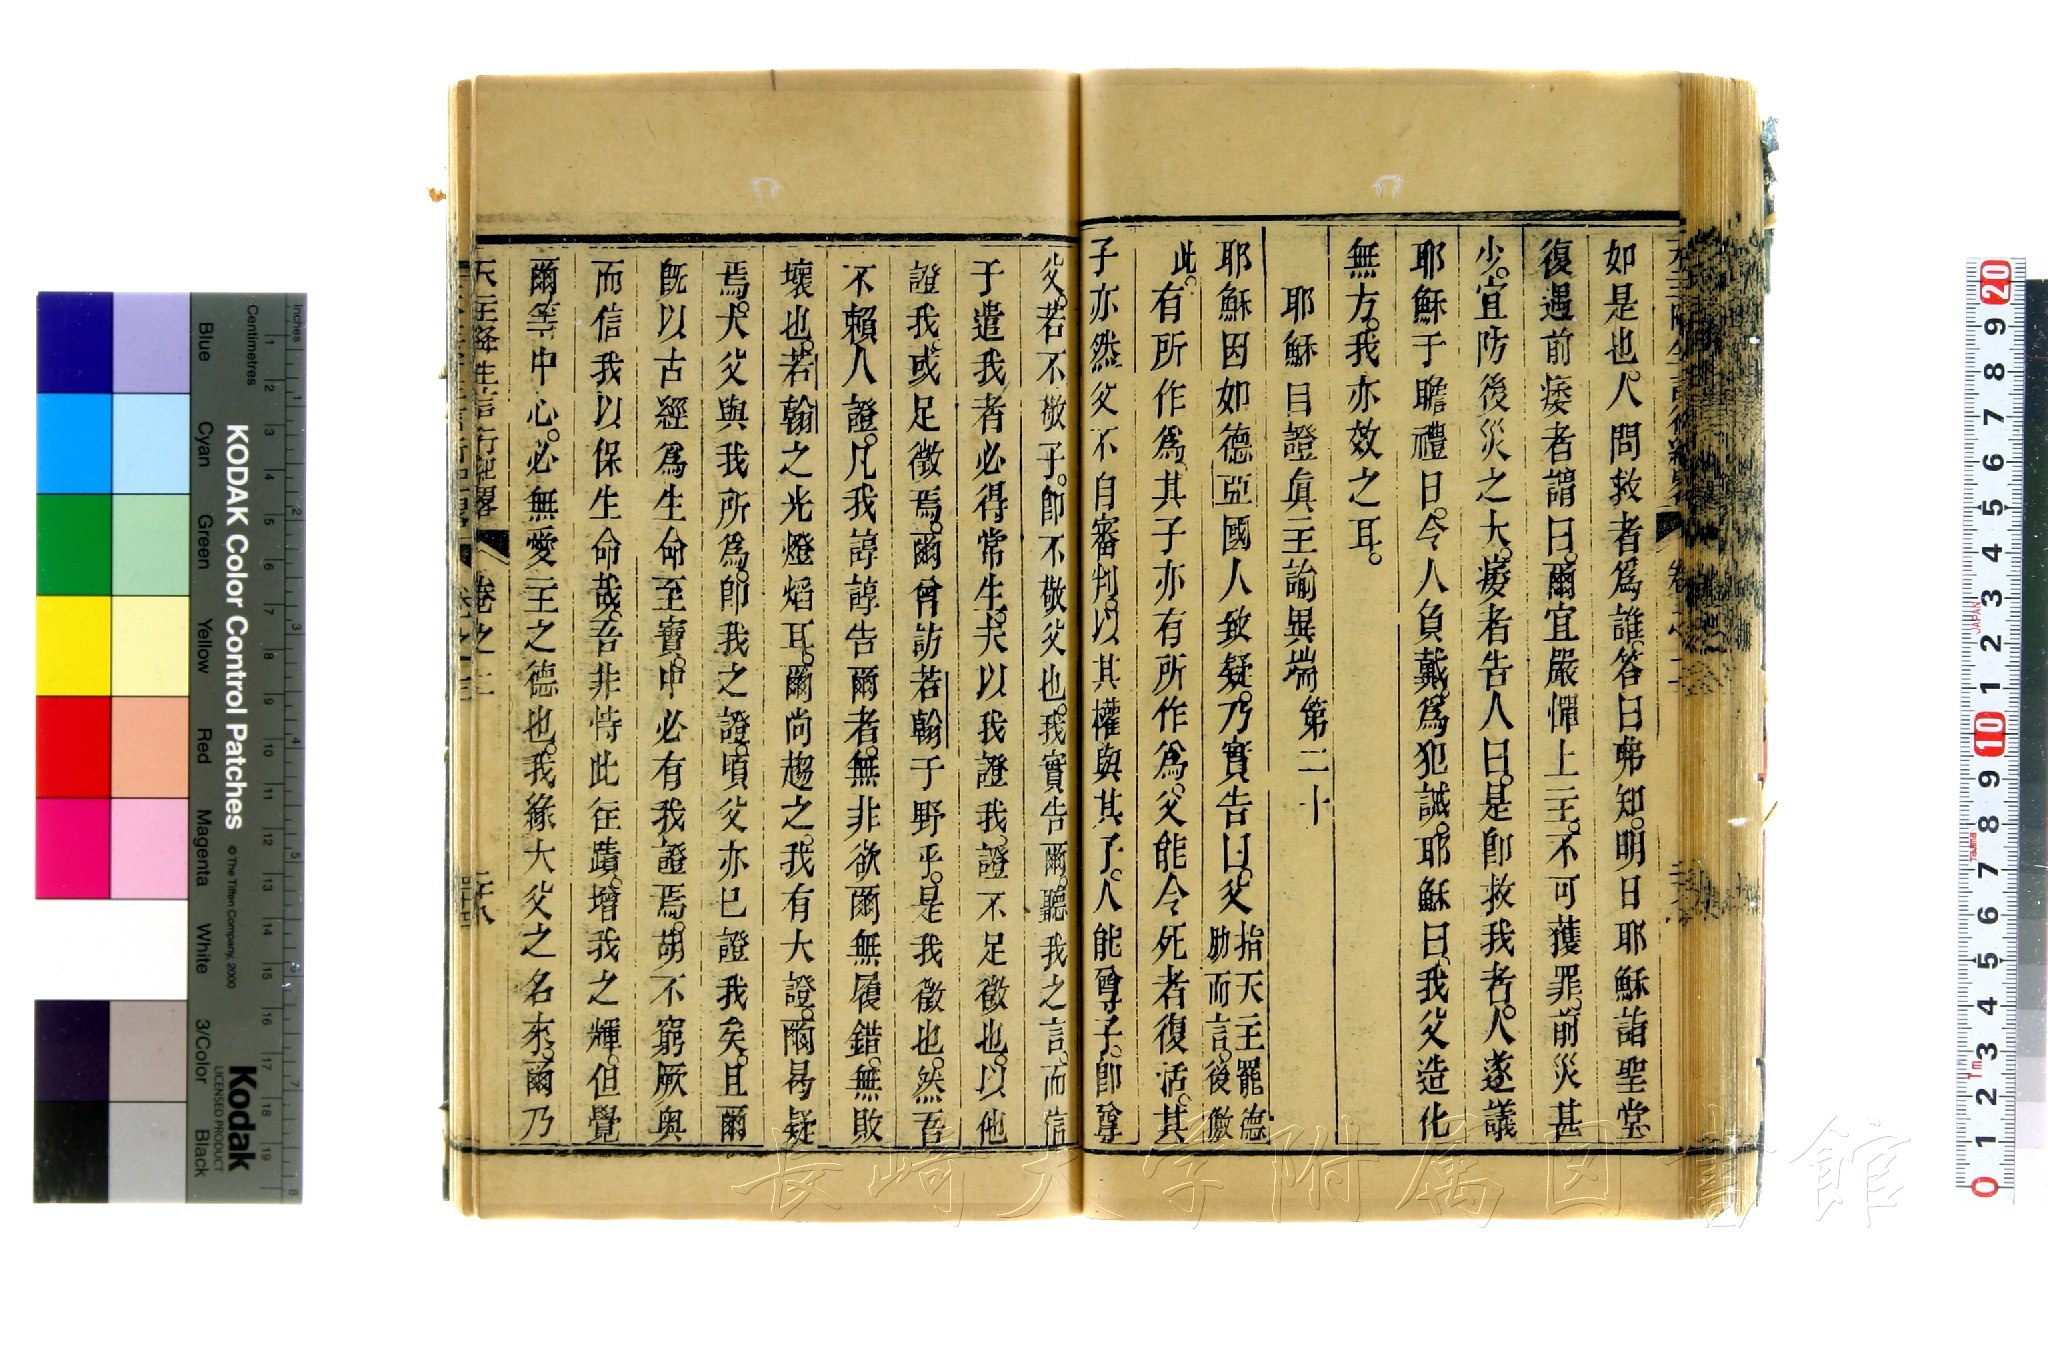 如是也。人問救者爲誰。答曰弗知。明日耶穌詣聖堂
復遇前痿者謂曰。爾宜嚴憚上主。不可獲罪。前災甚
少。宜防後災之大。痿者告人曰。是卽救我者。人遂議
耶穌于瞻禮日。令人負戴。爲犯誡。耶穌曰。我父造化
無方。我亦效之耳。
耶穌自證眞主諭異端 第二十
耶穌因如德亞國人致疑。乃實告曰。父 指天主罷德肋而言。後倣
此。有所作爲。其子亦有所作爲。父能令死者復活。其
子亦然父不自審判。以其權與其子。人能尊子。卽尊
父。若不敬子。卽不敬父也。我實告爾。聽我之言。而信
于遣我者必得常生。夫以我證我。證不足徵也。以他
證我。或足徵焉。爾曾訪若翰于野乎。是我徵也。然吾
不賴人證。凡我諄諄告爾者。無非欲爾無履錯。無敗
壞也。若翰之光燈焰耳。爾尚趨之。我有大證。爾曷疑
焉。大父與我所爲。卽我之證。頃父亦已證我矣。且爾
旣以古經爲生命至寶。中必有我證焉。胡不窮厥奥
而信我以保生命哉。吾非恃此往蹟。增我之輝。但覺
爾等中心。必無愛主之德也。我緣大父之名來。爾乃
天主降生言行紀畧 卷之三
KODAK Color Control Patches
© The Tiffen Company, 2000
Kodak
LICENSED PRODUCT
Inches
Centimetres
Blue Cyan Green Yellow Red Magenta White 3/Color Black
長崎大学附属図書館
JAPAN
Tajima